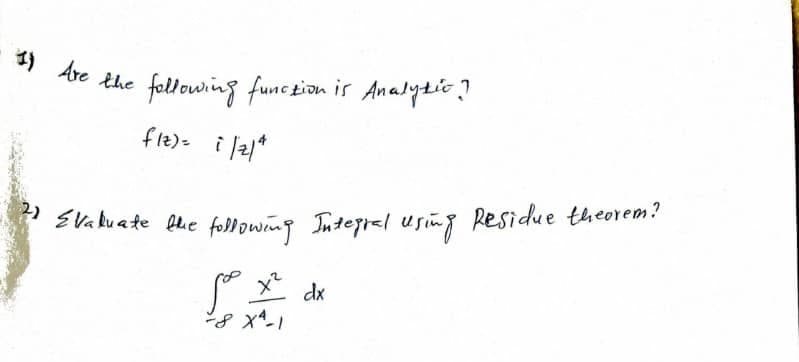 1) Are the following function is Analytic?
f(z)= i |z|⁴
2) Evaluate the following Integral using Residue theorem?
∫_{-∞}^{∞} x²/(x⁴-1) dx